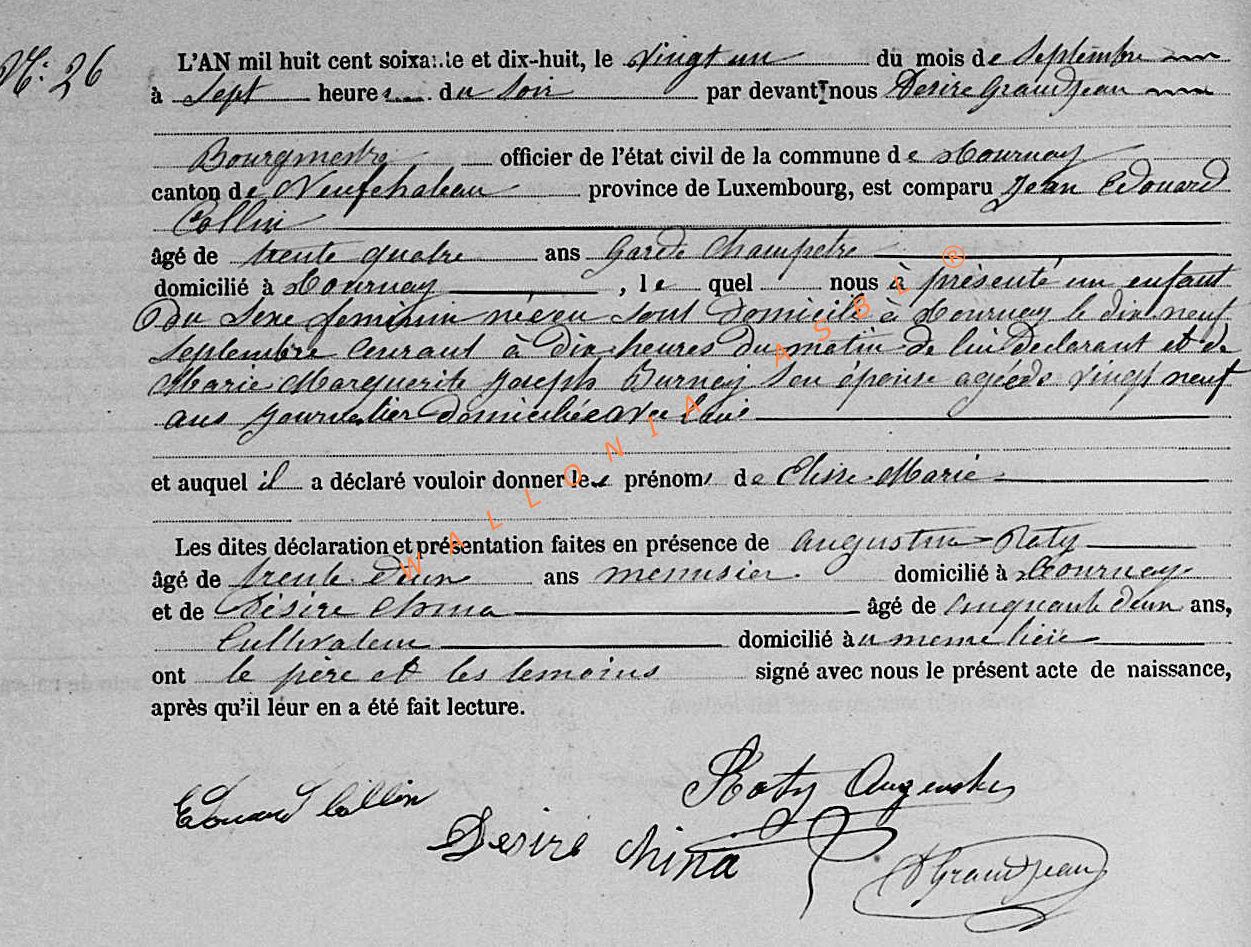 N: 26
L'AN mil huit cent soixante et dix-huit, le vingt un du mois de Septembre
à Sept heures du Soir par devant nous Desiré Grandjean
Bourgmestre officier de l'état civil de la commune de Tournay
canton de Neufchateau province de Luxembourg, est comparu Jean Edouard
Collin
âgé de trente quatre ans Garde Champetre
domicilié à Tournay, le quel nous à présenté un enfant
du Sexe feminin née en Sont Domicile à Tournay le dix neuf
Septembre Courant à dix heures du matin de lui déclarant et de
Marie Marguerite Joseph Burnay Son épouse agée de vingt neuf
ans Journalier domiciliée avec lui
et auquel il a déclaré vouloir donner les prénoms de Elise Marie
Les dites déclaration et présentation faites en présence de Augustin Roty
âgé de trente deux ans menusier domicilié à Tournay
et de Désiré China âgé de Cinquante deux ans,
Cultivateur domicilié au meme lieu
ont le père et les temoins signé avec nous le présent acte de naissance,
après qu'il leur en a été fait lecture.
Edouard Collin
Roty Augustin
Desiré China
D Grandjean
WALLONIA ASBL ®